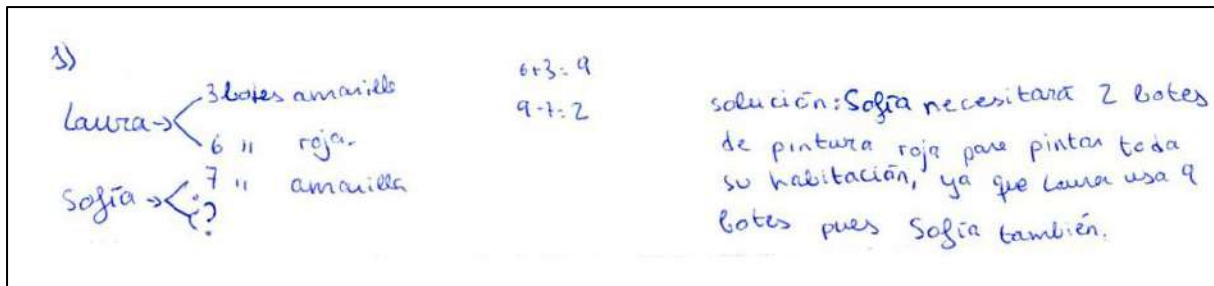 1)
Laura → 3 botes amarillo
6 " roja.
Sofía → 7 " amarilla
¿?
6+3=9
9-7=2
solución: Sofía necesitará 2 botes
de pintura roja para pintar toda
su habitación, ya que Laura usa 9
botes pues Sofía también.